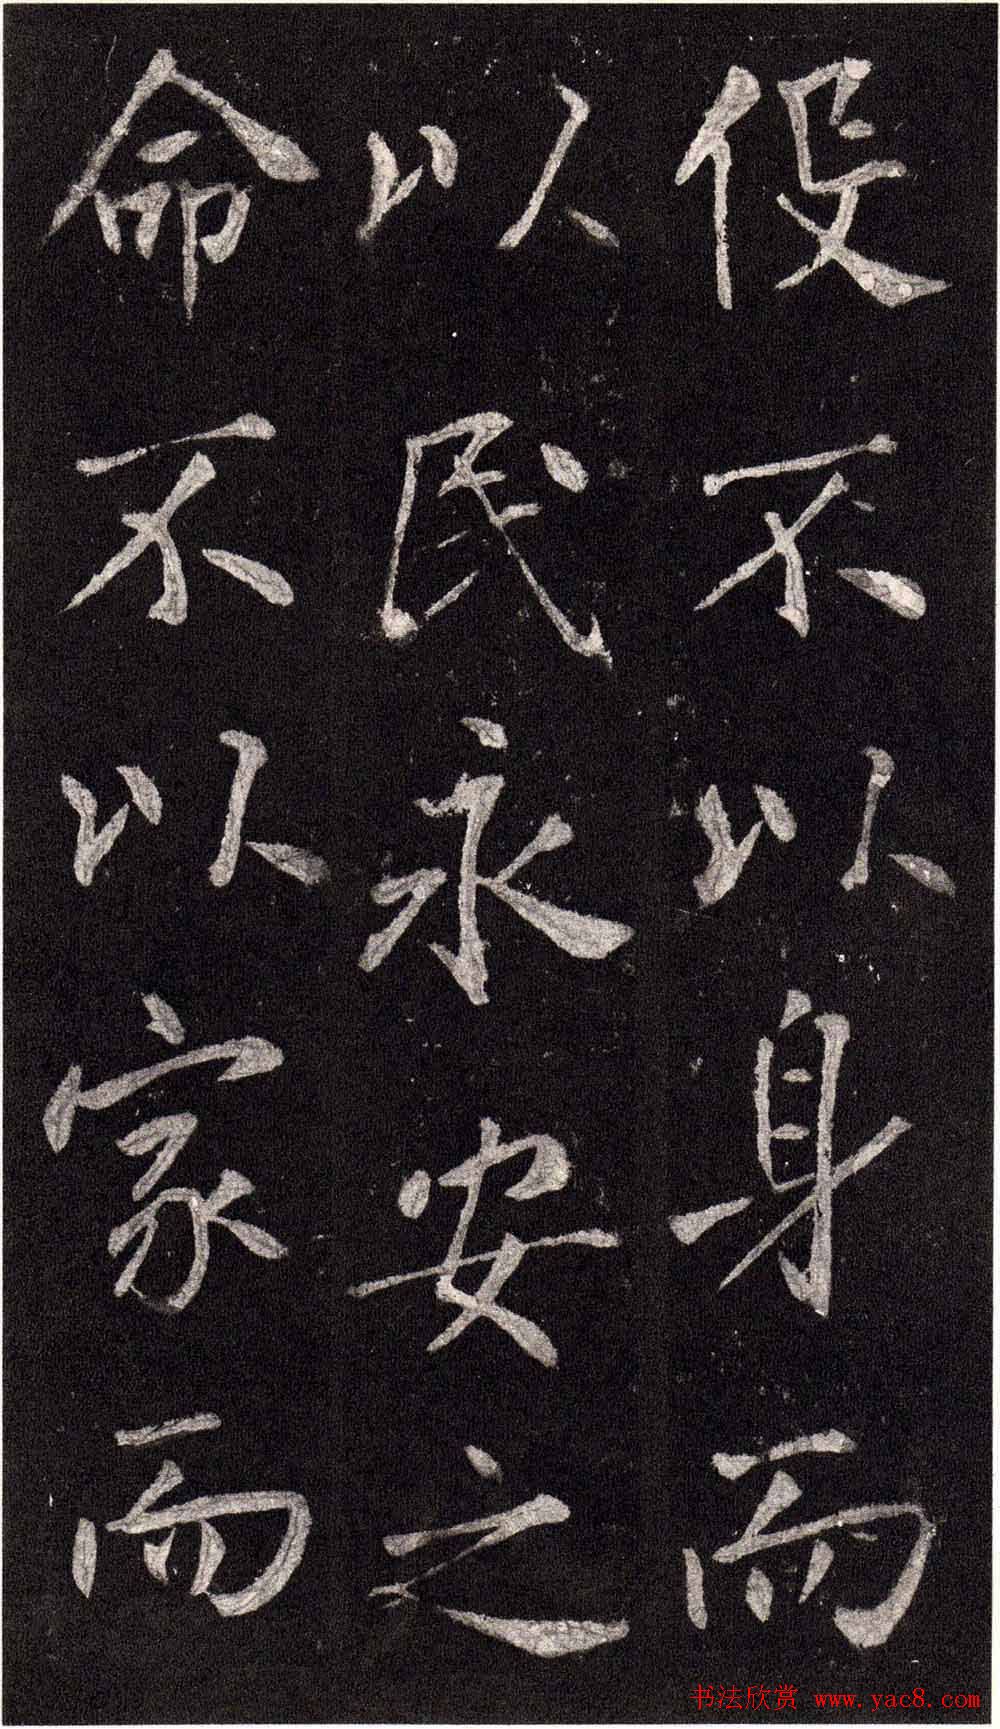 伇不以身而
以民永安之
命不以家而
书法欣赏 www.yac8.com